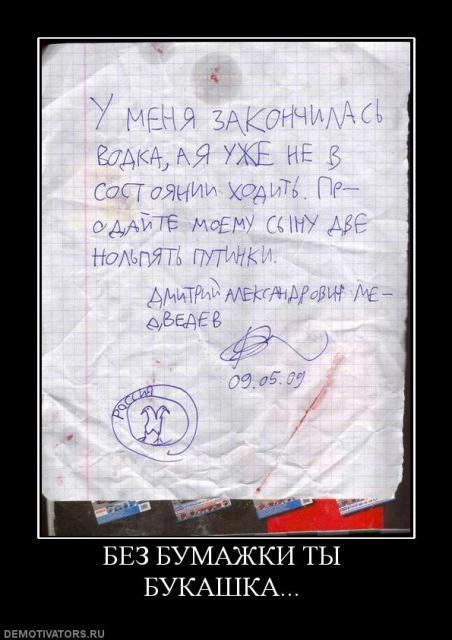 У МЕНЯ ЗАКОНЧИЛАСЬ
ВОДКА, А Я УЖЕ НЕ В
СОСТОЯНИИ ХОДИТЬ. ПР-
ОДАЙТЕ МОЕМУ СЫНУ ДВЕ
НОЛЬПЯТЬ ПУТИНКИ.
ДМИТРИЙ АЛЕКСАНДРОВИЧ МЕ-
ДВЕДЕВ
09.05.09
РОССИЯ
БЕЗ БУМАЖКИ ТЫ
БУКАШКА...
DEMOTIVATORS.RU